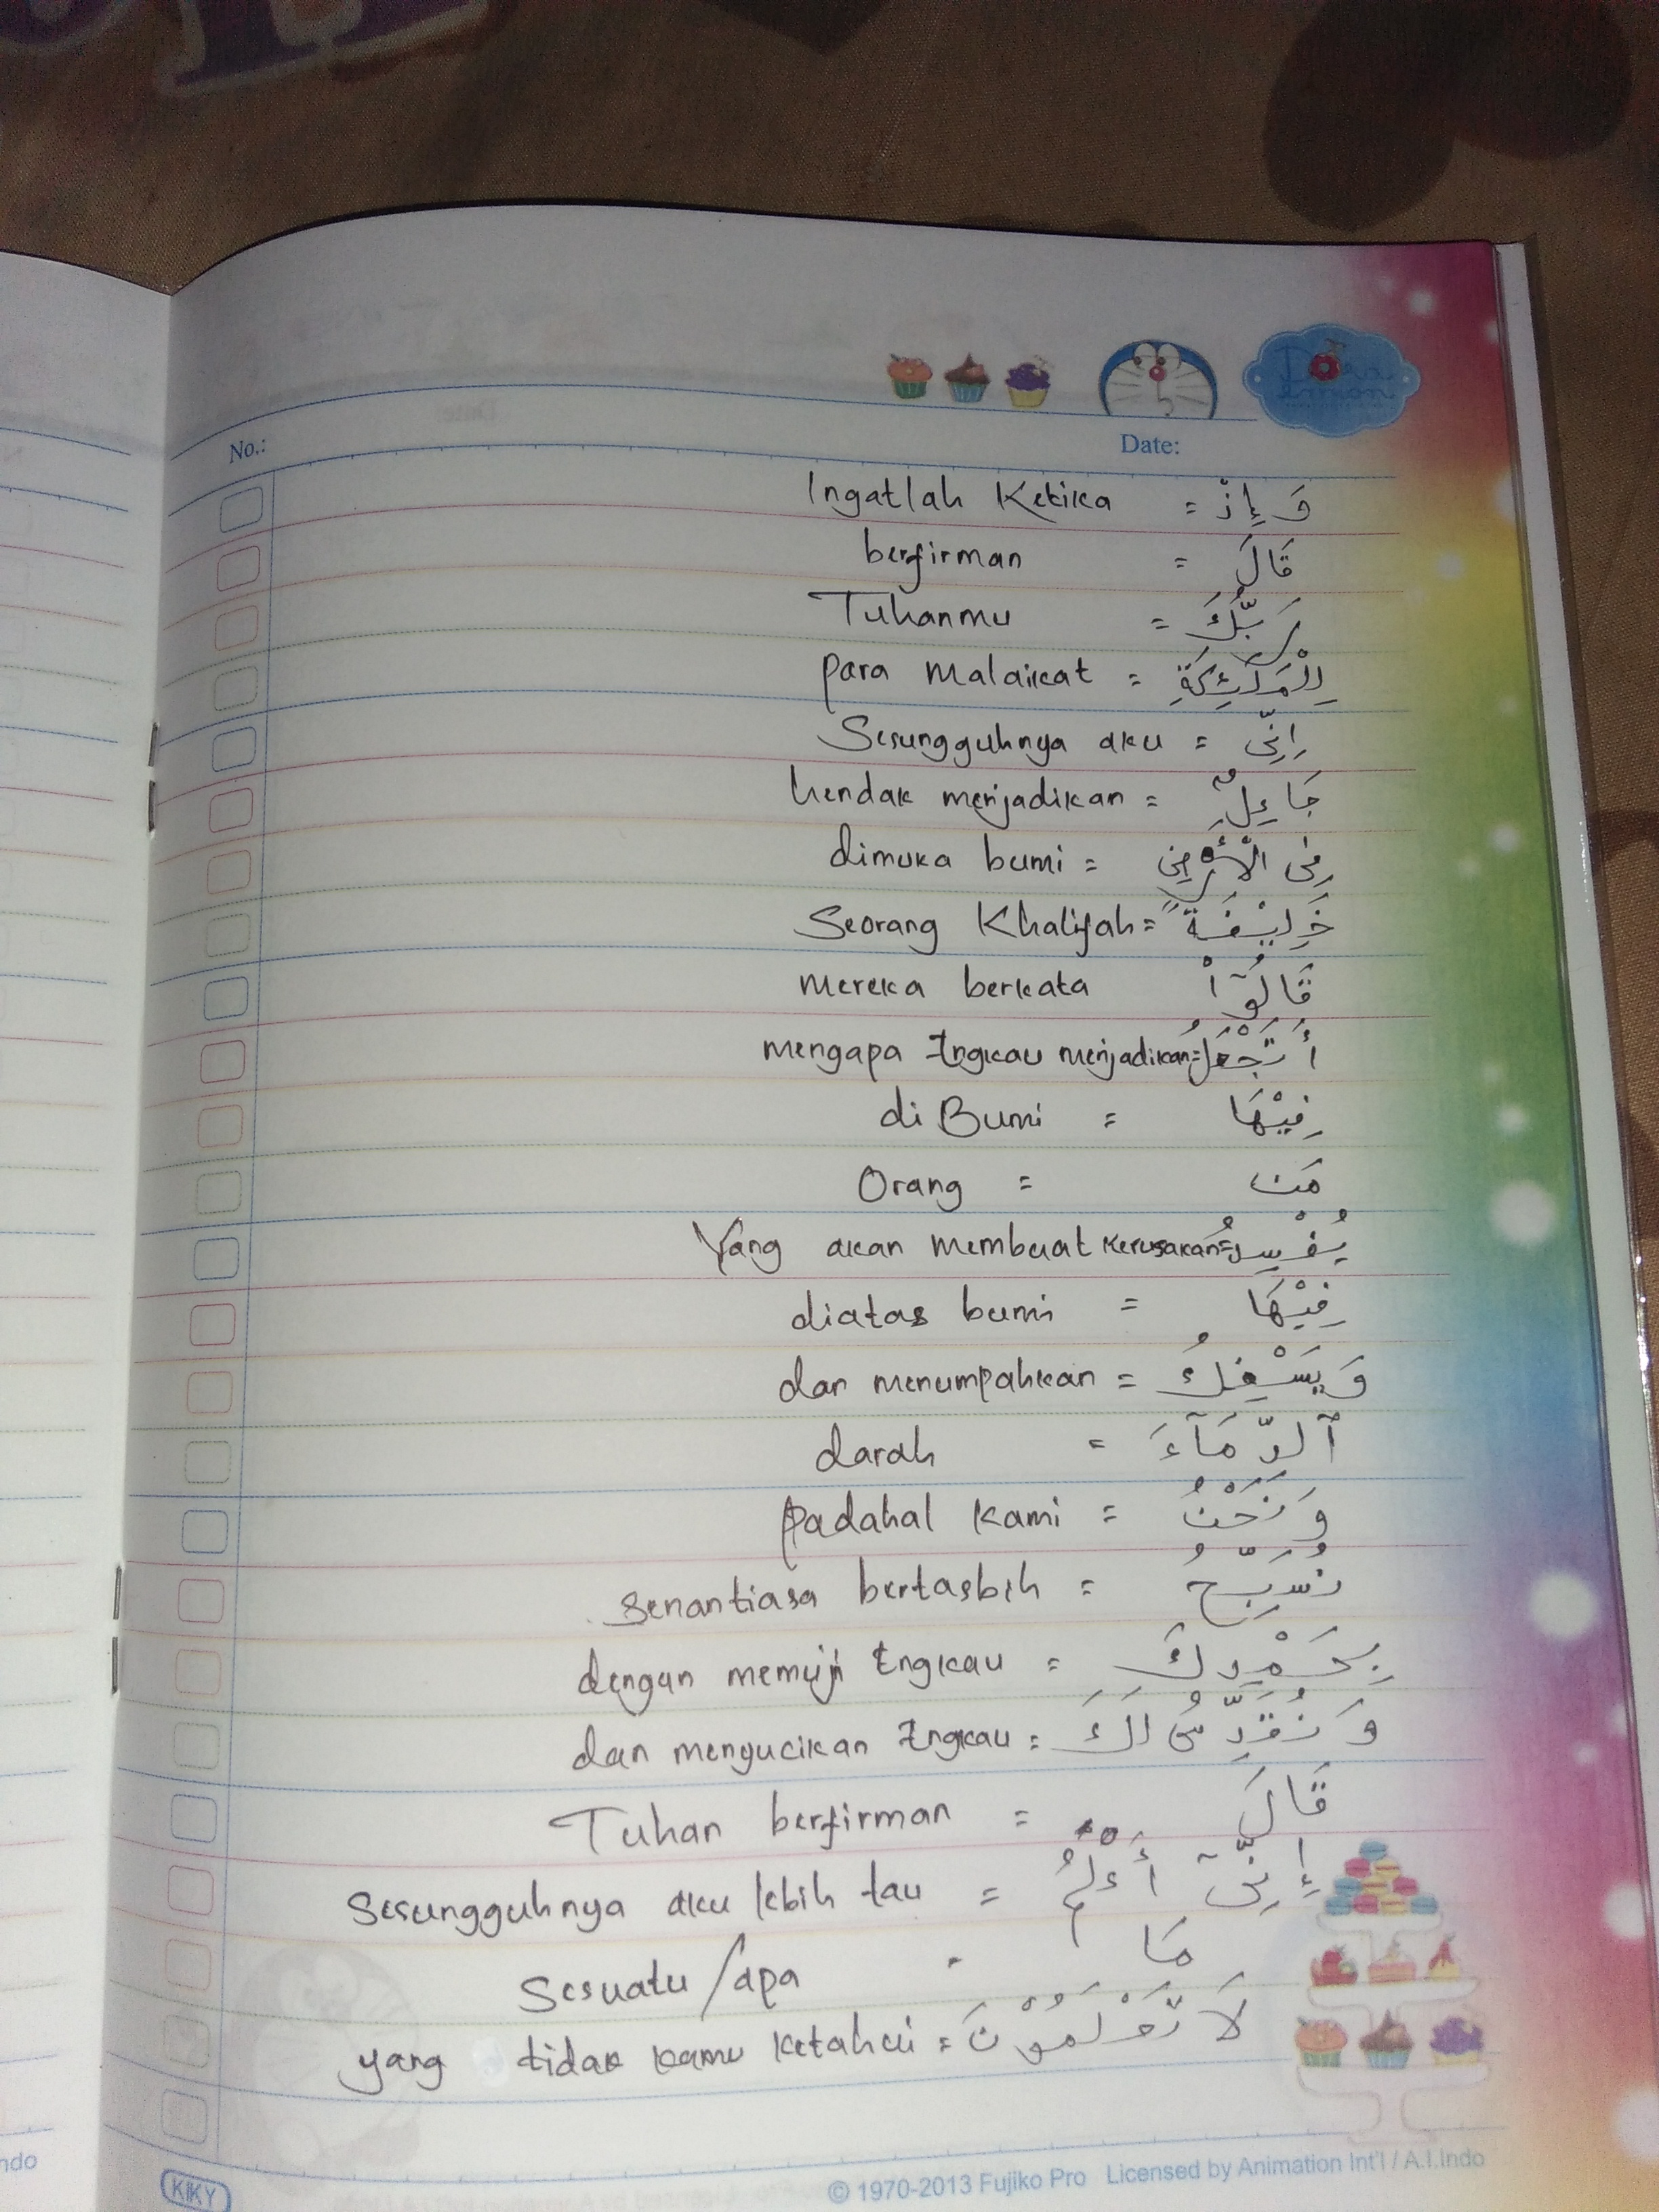 Doraemon
No.:
Date:
وَإِذْ = Ingatlah Ketika
قَالَ = berfirman
رَبُّكَ = Tuhanmu
لِلْمَلَئِكَةِ = para malaikat
اِنِّى = Sesungguhnya aku
جَاعِلٌ = hendak menjadikan
فِى الْأَرْضِ = dimuka bumi
خَلِيْفَةً = Seorang Khalifah
قَالُوٓاْ mereka berkata
أَتَجْعَلُ = mengapa Engkau menjadikan
فِيْهَا = di Bumi
مَن = Orang
يُفْسِدُ = Yang akan membuat kerusakan
فِيْهَا = diatas bumi
وَيَسْفِكُ = dan menumpahkan
ٱلدِّمَآءَ = darah
وَنَحْنُ = padahal kami
نُسَبِّحُ = senantiasa bertasbih
بِحَمْدِكَ = dengan memuji Engkau
وَنُقَدِّسُ لَكَ = dan menyucikan Engkau
قَالَ = Tuhan berfirman
إِنِّىٓ أَعْلَمُ = Sesungguhnya aku lebih tau
مَا Sesuatu / apa
لَا تَعْلَمُوْنَ = yang tidak kamu ketahui
KIKY
© 1970-2013 Fujiko Pro Licensed by Animation Int'l / A.I.Indo
ndo